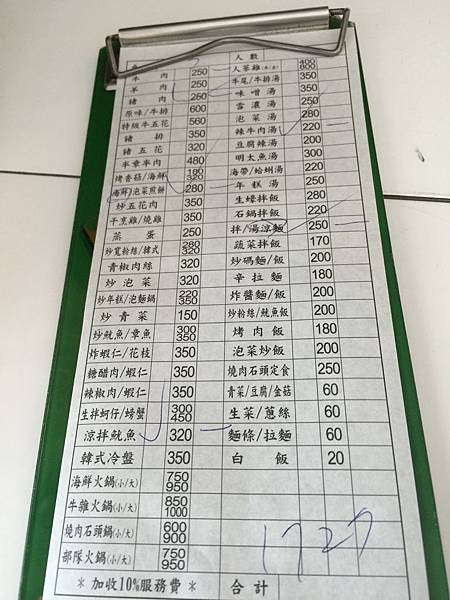 人數
牛肉 250 人蔘雞(半/全) 400 800
羊肉 250 牛尾/牛排湯 350
豬肉 250 味噌湯 350
原味/牛排 600 雪濃湯 350
特級牛五花 560 泡菜湯 200
豬排 350 辣牛肉湯 220
豬五花 320 豆腐辣湯 200
半章半肉 480 明太魚湯 300
烤香菇/海鮮 180 320 海帶/蛤蜊湯 200
海鮮/泡菜煎餅 280 年糕湯 220
炒五花肉 350 生蠔拌飯 280
干烹雞/燒雞 350 石鍋拌飯 220
蒸蛋 250 拌/湯涼麵 250
炒寬粉絲/韓式 280 320 蔬菜拌飯 170
青椒肉絲 320 炒碼麵/飯 200
炒泡菜 320 辛拉麵 180
炒年糕/泡麵鍋 220 350 炸醬麵/飯 200
炒青菜 150 炒粉絲/魷魚飯 200
炒魷魚/章魚 300 350 烤肉飯 180
炸蝦仁/花枝 350 泡菜炒飯 200
糖醋肉/蝦仁 350 燒肉石頭定食 250
辣椒肉/蝦仁 350 青菜/豆腐/金菇 60
生拌蚵仔/螃蟹 300 450 生菜/蔥絲 60
涼拌魷魚 320 麵條/拉麵 60
韓式冷盤 350 白飯 20
海鮮火鍋(小/大) 750 950
牛雜火鍋(小/大) 850 1000
燒肉石頭鍋(小/大) 600 900
部隊火鍋(小/大) 750 950
1727
＊加收10%服務費＊ 合計